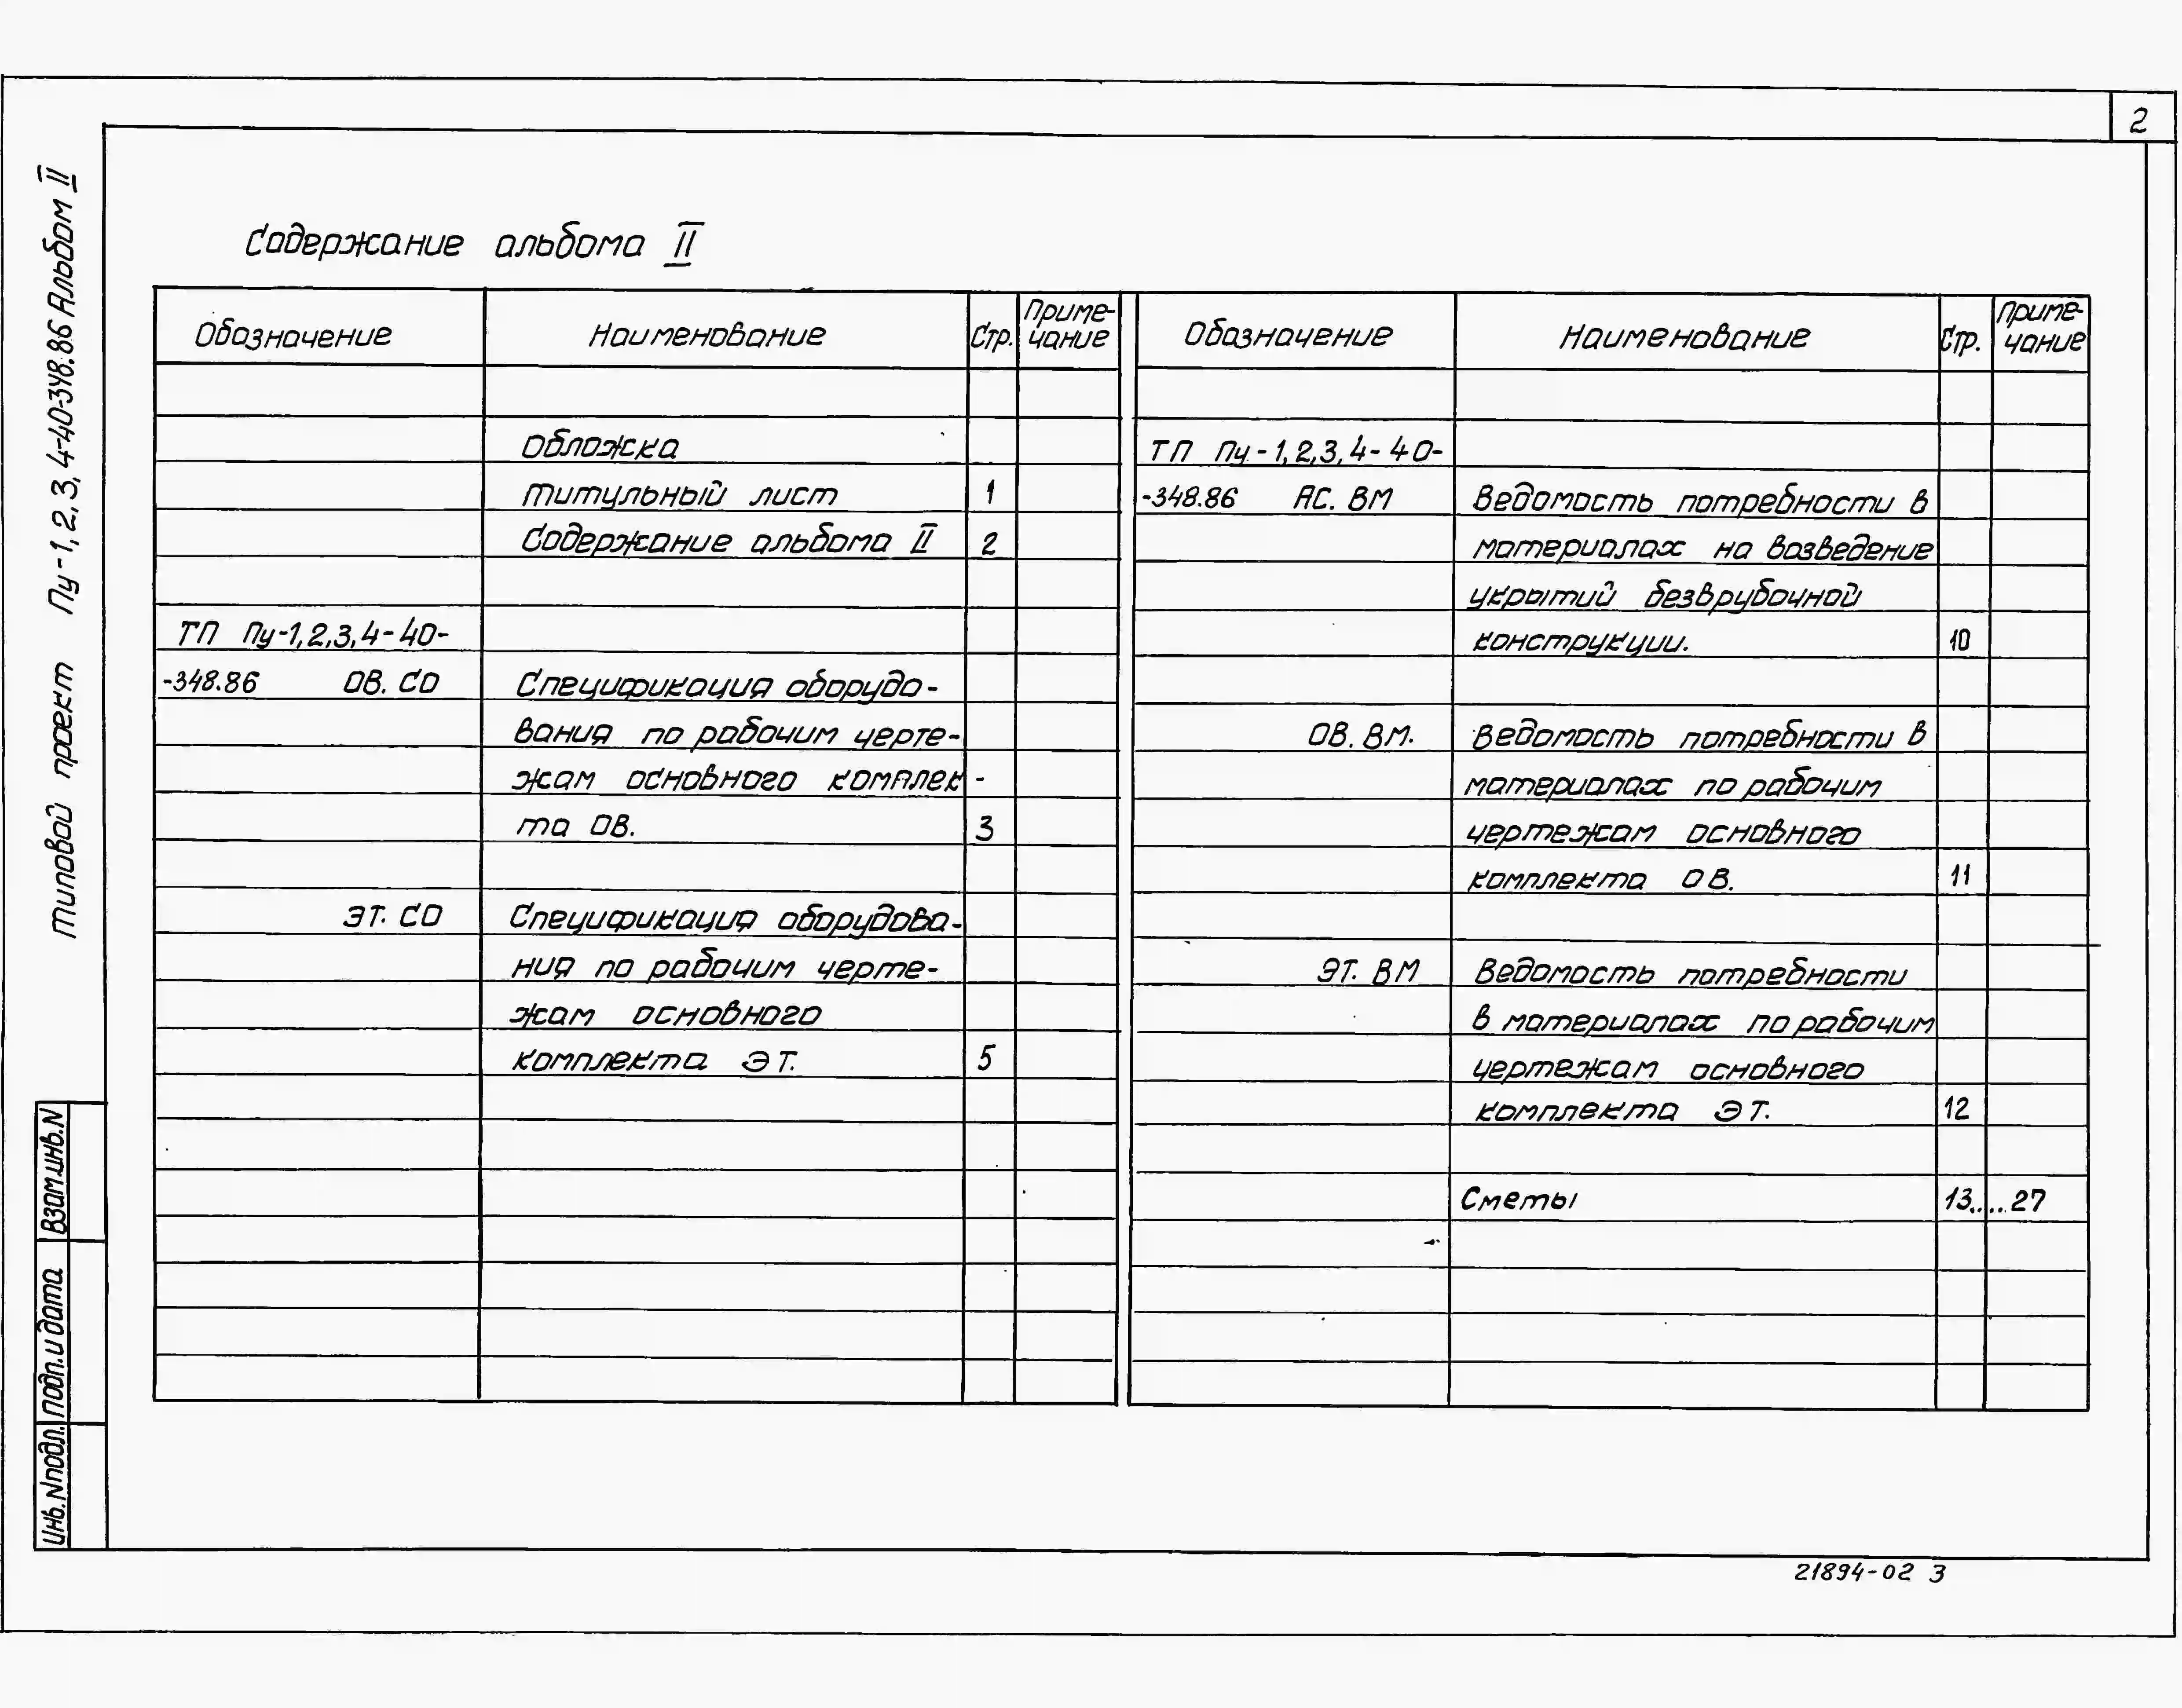 2
Типовой проект Пу-1,2,3,4-40-348.86 Альбом II
Содержание альбома II
Обозначение Наименование Стр. Приме-
чание
Обложка
Титульный лист 1
Содержание альбома II 2
ТП Пу-1,2,3,4-40-
-348.86 ОВ.СО Спецификация оборудо-
вания по рабочим черте-
жам основного комплек-
та ОВ. 3
ЭТ.СО Спецификация оборудова-
ния по рабочим черте-
жам основного
комплекта ЭТ. 5
Обозначение Наименование Стр. Приме-
чание
ТП Пу-1,2,3,4-40-
-348.86 АС.ВМ Ведомость потребности в
материалах на возведение
укрытий безврубочной
конструкции. 10
ОВ.ВМ. Ведомость потребности в
материалах по рабочим
чертежам основного
комплекта ОВ. 11
ЭТ.ВМ Ведомость потребности
в материалах по рабочим
чертежам основного
комплекта ЭТ. 12
Сметы 13....27
Взам.инв.N
Подп.и дата
Инв.Nподл.
21894-02 3